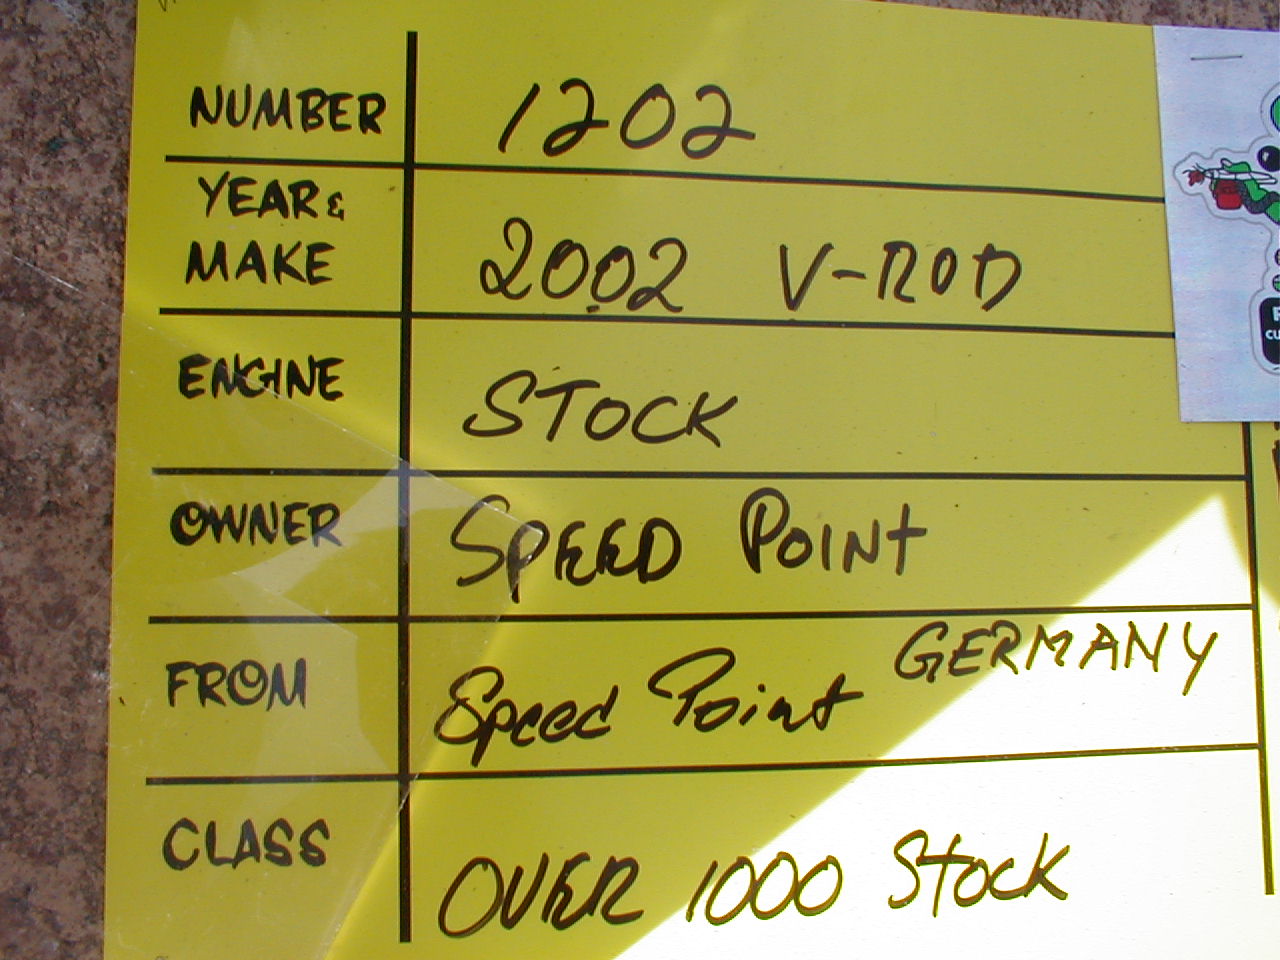 NUMBER 1202
YEAR &
MAKE 2002 V-ROD
ENGINE STOCK
OWNER SPEED POINT
FROM Speed Point GERMANY
CLASS OVER 1000 Stock